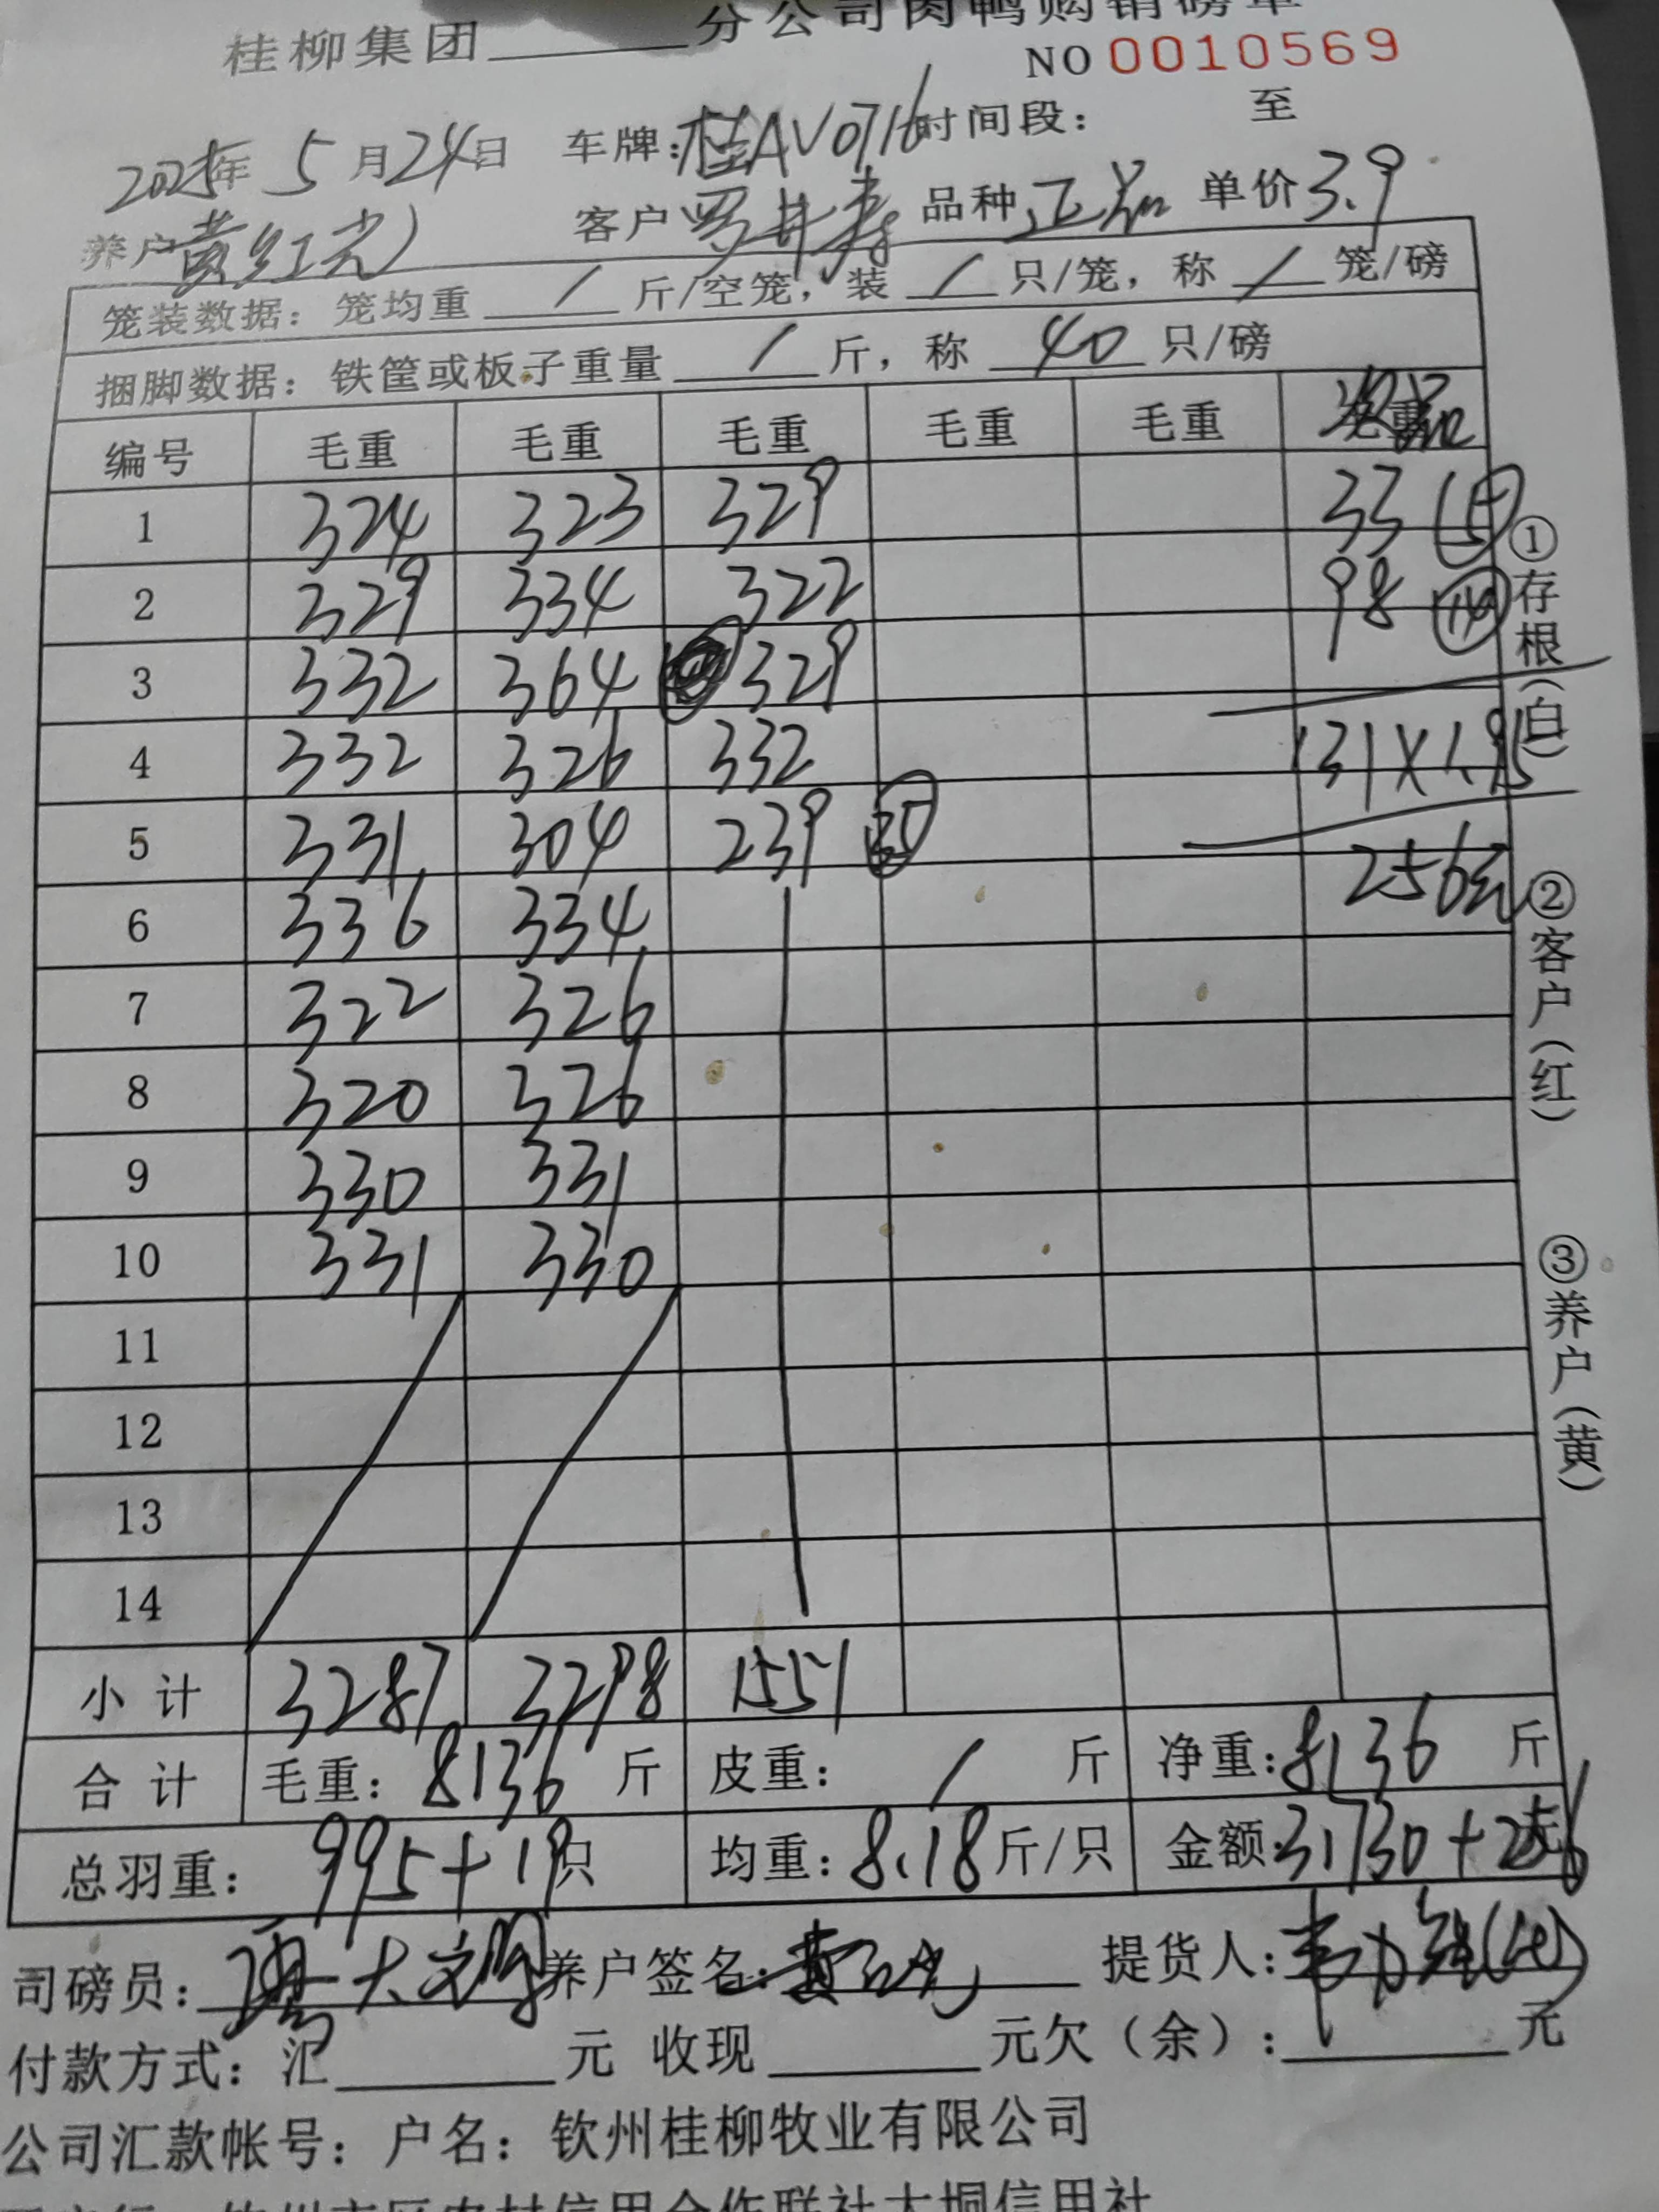 桂柳集团______分公司肉鸭购销磅单
NO 0010569
2025年 5 月 24 日 车牌:桂AV0716 时间段: 至
养户 黄红光 客户 罗井寿 品种 正品 单价 3.9
笼装数据: 笼均重 / 斤/空笼, 装 / 只/笼, 称 / 笼/磅
捆脚数据: 铁筐或板子重量 / 斤, 称 40 只/磅
编号 毛重 毛重 毛重 毛重 毛重
1 324 323 329 33 (5)
2 329 334 322 98 (14)
3 332 364 329
4 332 326 332 131×1.95
5 331 304 239 (30) 256元
6 336 334
7 322 326
8 320 326
9 330 331
10 331 330
11
12
13
14
小计 3287 3298 1551
合计 毛重: 8136 斤 皮重: / 斤 净重: 8136 斤
总羽重: 995+19只 均重: 8.18斤/只 金额:31730+256元
司磅员: 养户签名: 黄红光 提货人:
付款方式: 汇______元 收现______元欠(余):______元
公司汇款帐号: 户名: 钦州桂柳牧业有限公司
①存根(白)
②客户(红)
③养户(黄)